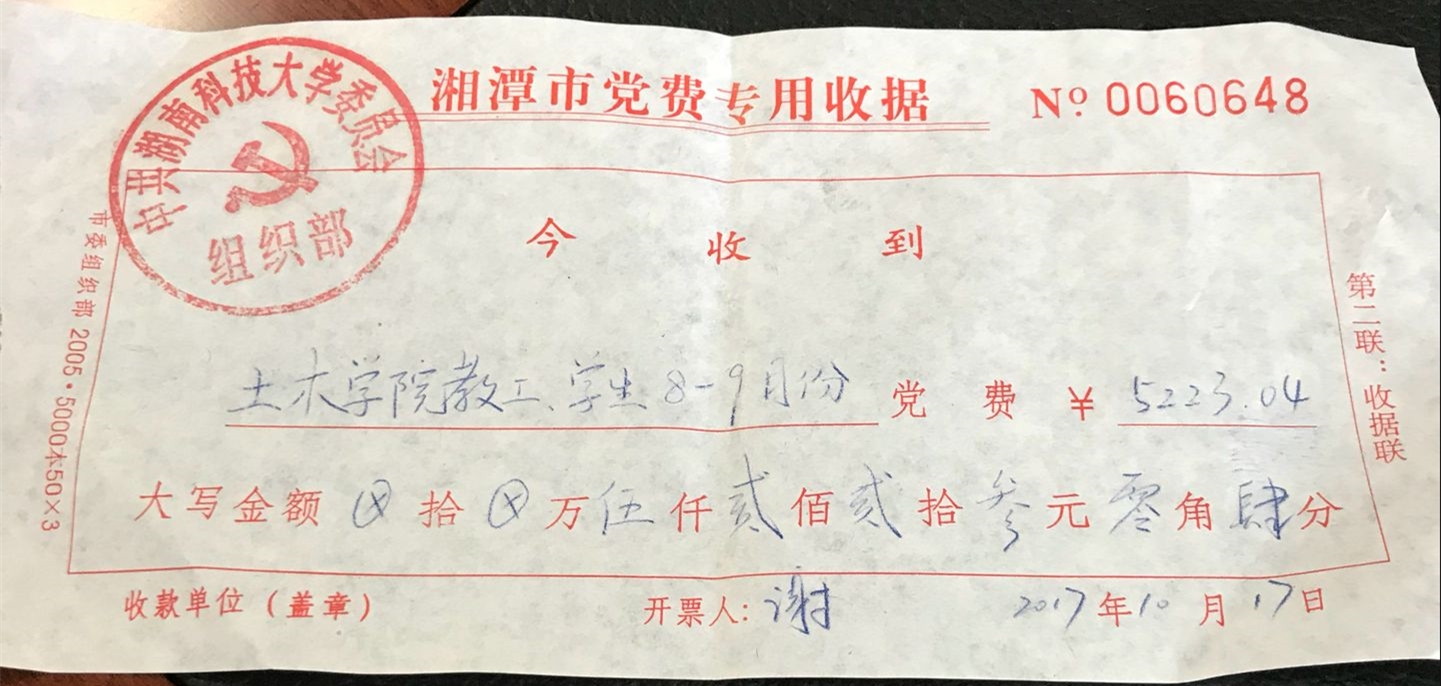 湘潭市党费专用收据 Nº 0060648
中共湖南科技大学委员会
组织部
今收到
土木学院教工、学生8-9月份党费¥5223.04
大写金额⊗拾⊗万伍仟贰佰贰拾叁元零角肆分
收款单位(盖章) 开票人:谢 2017年10月17日
市委组织部 2005·5000本50×3
第二联:收据联